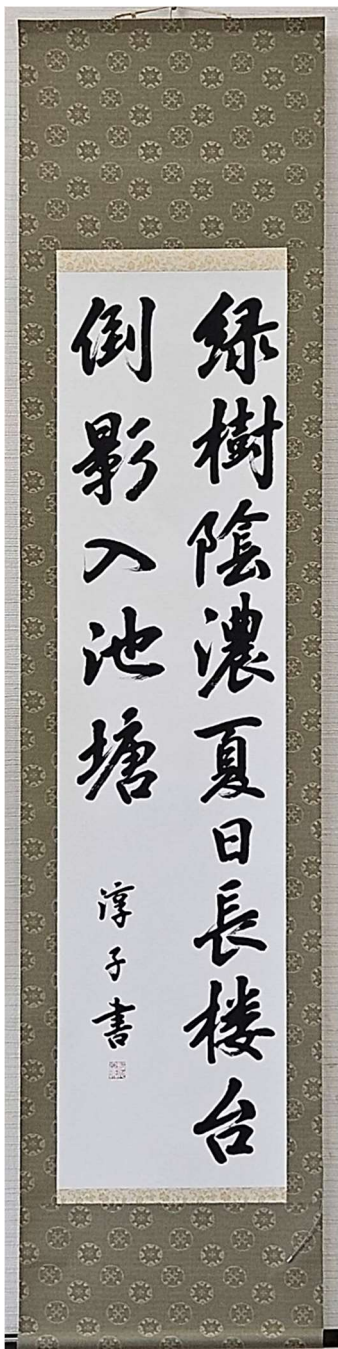 緑樹陰濃夏日長楼台
倒影入池塘
淳子書